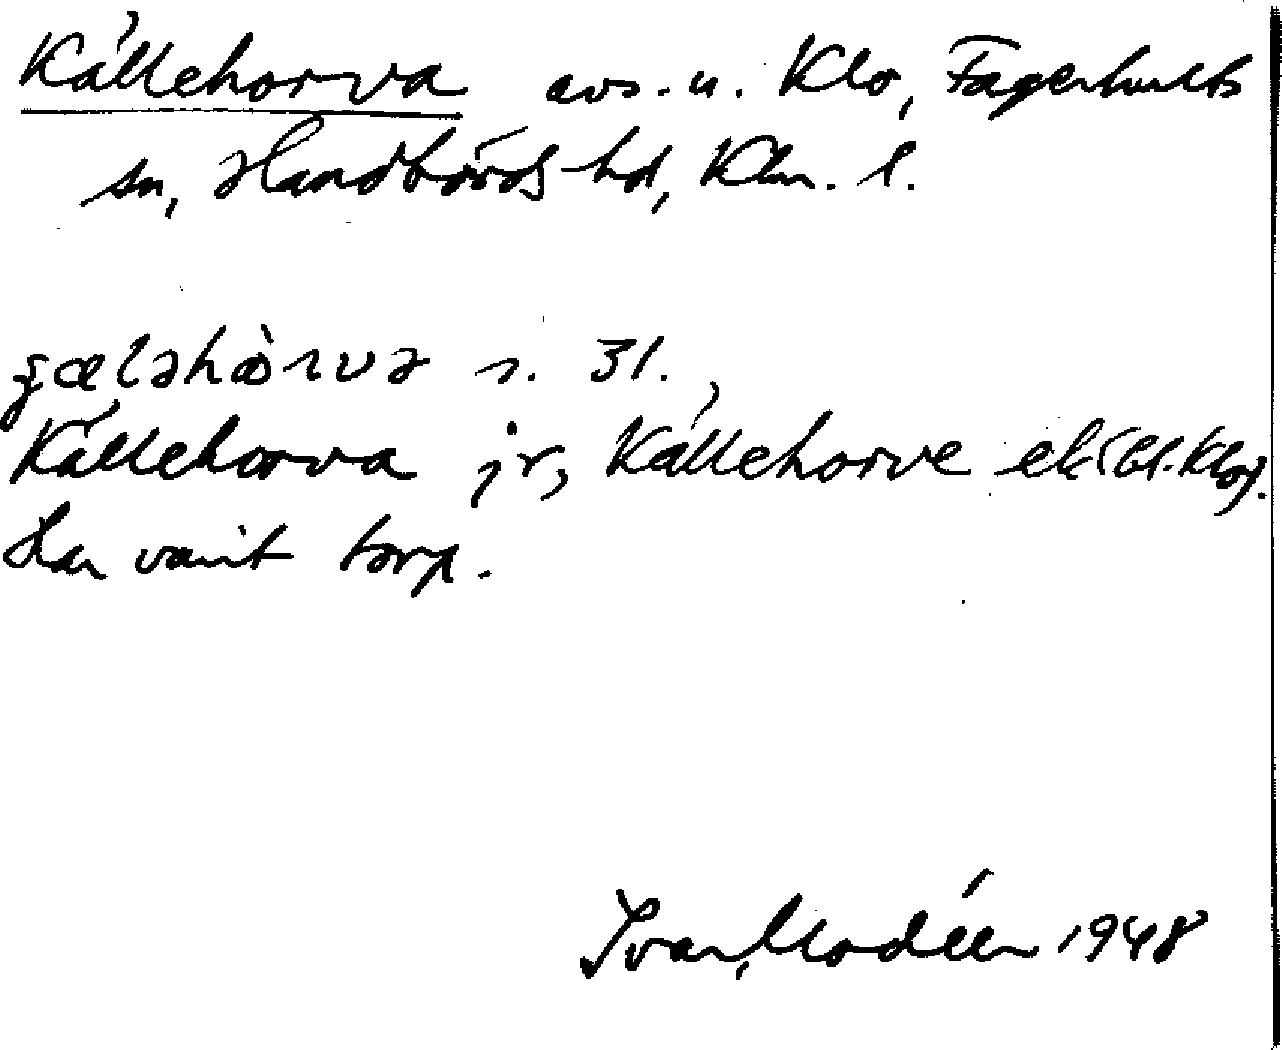 Källehorva avs. u. Klo, Fagerhults
sn, Handbörds hd, Klm. l.
r. 31.
Källehorva jr, Källehorve ek (bl. Klo).
Har varit torp.
Ivar Modéer 1948